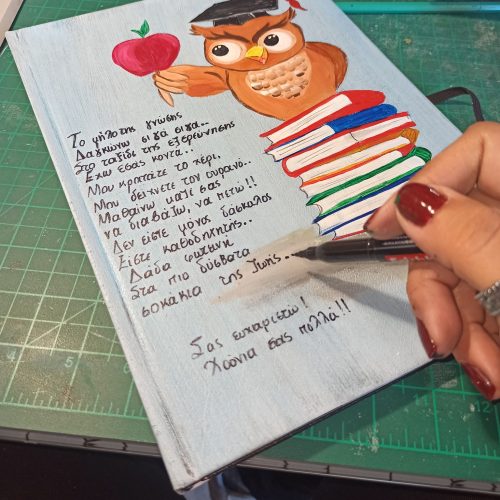 Το μήλο της γνώσης
Δαγκώνω σιγά σιγά..
Στο ταξίδι της εξερεύνησης
Έχω εσάς κοντά..
Μου κρατάτε το χέρι,
Μου δείχνετε τον ουρανό..
Μαθαίνω μαζί σας
να διαβάζω, να πετώ!!
Δεν είστε μόνος δάσκαλος
Είστε καθοδηγητής..
Δάδα φωτεινή
Στα πιο δύσβατα
σοκάκια της ζωής..
Σας ευχαριστώ!
Χρόνια σας πολλά!!